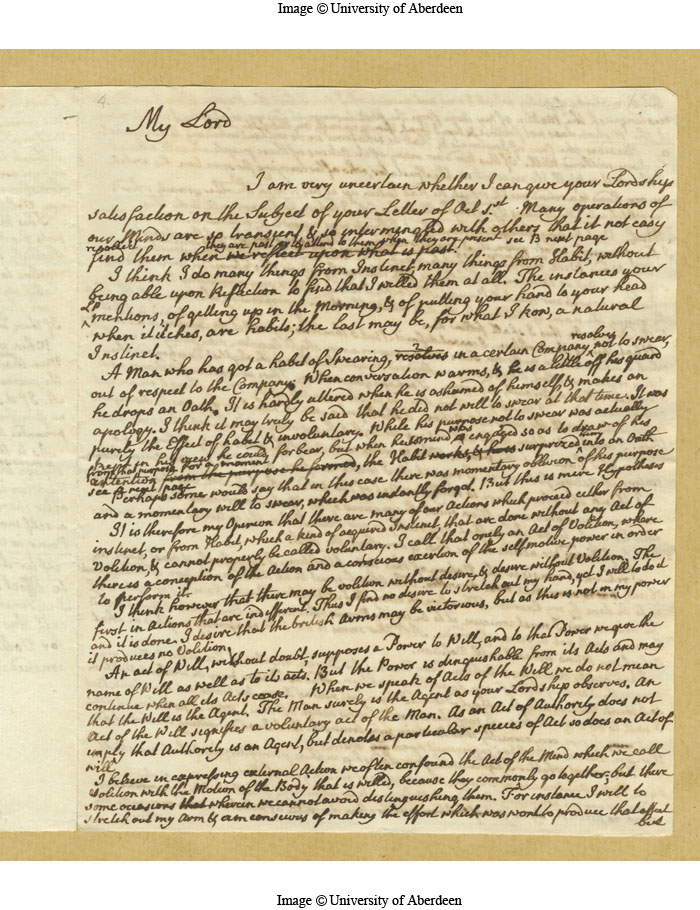 Image © University of Aberdeen
4.
My Lord
I am very uncertain whether I can give your Lordship
satisfaction on the Subject of your Letter of Oct 1.st. Many operations of
our Minds are so transient & so intermingled with others that it not easy
recollect they are past or to attend to them when they are present see B next page
find them when we reflect upon what is past.
I think I do many things from Instinct, many things from Habit, without
being able upon Reflection to find that I willed them at all. The instances your
Lp
mentions, of getting up in the Morning, & of pulling your hand to your head
when it itches, are habits; the last may be, for what I kow, a natural
Instinct.
resolves
A Man who has got a habit of Swearing, resolves in a certain Company, not to swear,
out of respect to the Company. When conversation warms, & he is a little off his guard
he drops an Oath. It is hardly uttered when he is ashamed of himself, & makes an
apology. I think it may truly be said that he did not will to swear at that time. It was
purely the Effect of habit & involuntary. While his purpose not to swear was actually
present in his mind he could forbear, but when his mind was engaged so as to draw of his
from that purpose for a moment
attention from the purpose he formed, the Habit works, & surprized into an Oath
see B next page
Perhaps some would say that in this case there was momentary oblivion of his purpose
and a momentary will to swear, which was instantly forgot. But this is mere Hypothesis
It is therefore my Opinion that there are many of our Actions which proceed either from
instinct, or from Habit, which a kind of acquired Instinct, that are done without any Act of
Volition, & cannot properly be called voluntary. I call that onely an Act of Volition, where
there is a conception of the Action and a conscious exertion of the self motive power in order
to perform it
I think however that there may be volition without desire, & desire without Volition. The
first in Actions that are indifferent. Thus I find no desire to stretch out my hand, yet I will to do it
and it is done. I desire that the british Arms may be victorious, but as this is not in my power
it produces no Volition
An act of Will, without doubt, supposes a Power to Will, and to that Power we give the
name of Will as well as to its acts. But the Power is dinguishable from its Acts and may
continue when all its Acts cease. When we speak of Acts of the Will we do not mean
that the Will is the Agent. The Man surely is the Agent as your Lordship observes. An
Act of the Will signifies a voluntary act of the Man. As an Act of Authority does not
imply that Authority is an Agent, but denotes a particular species of Act so does an Act of
will
I believe in expressing external Action we often confound the Act of the Mind which we call
volition with the Motion of the Body that is willed, because they commonly go together; but there
some occasions that wherein we cannot avoid distinguishing them. For instance I will to
stretch out my arm & am conscious of making the effort which was wont to produce that effect
but
Image © University of Aberdeen